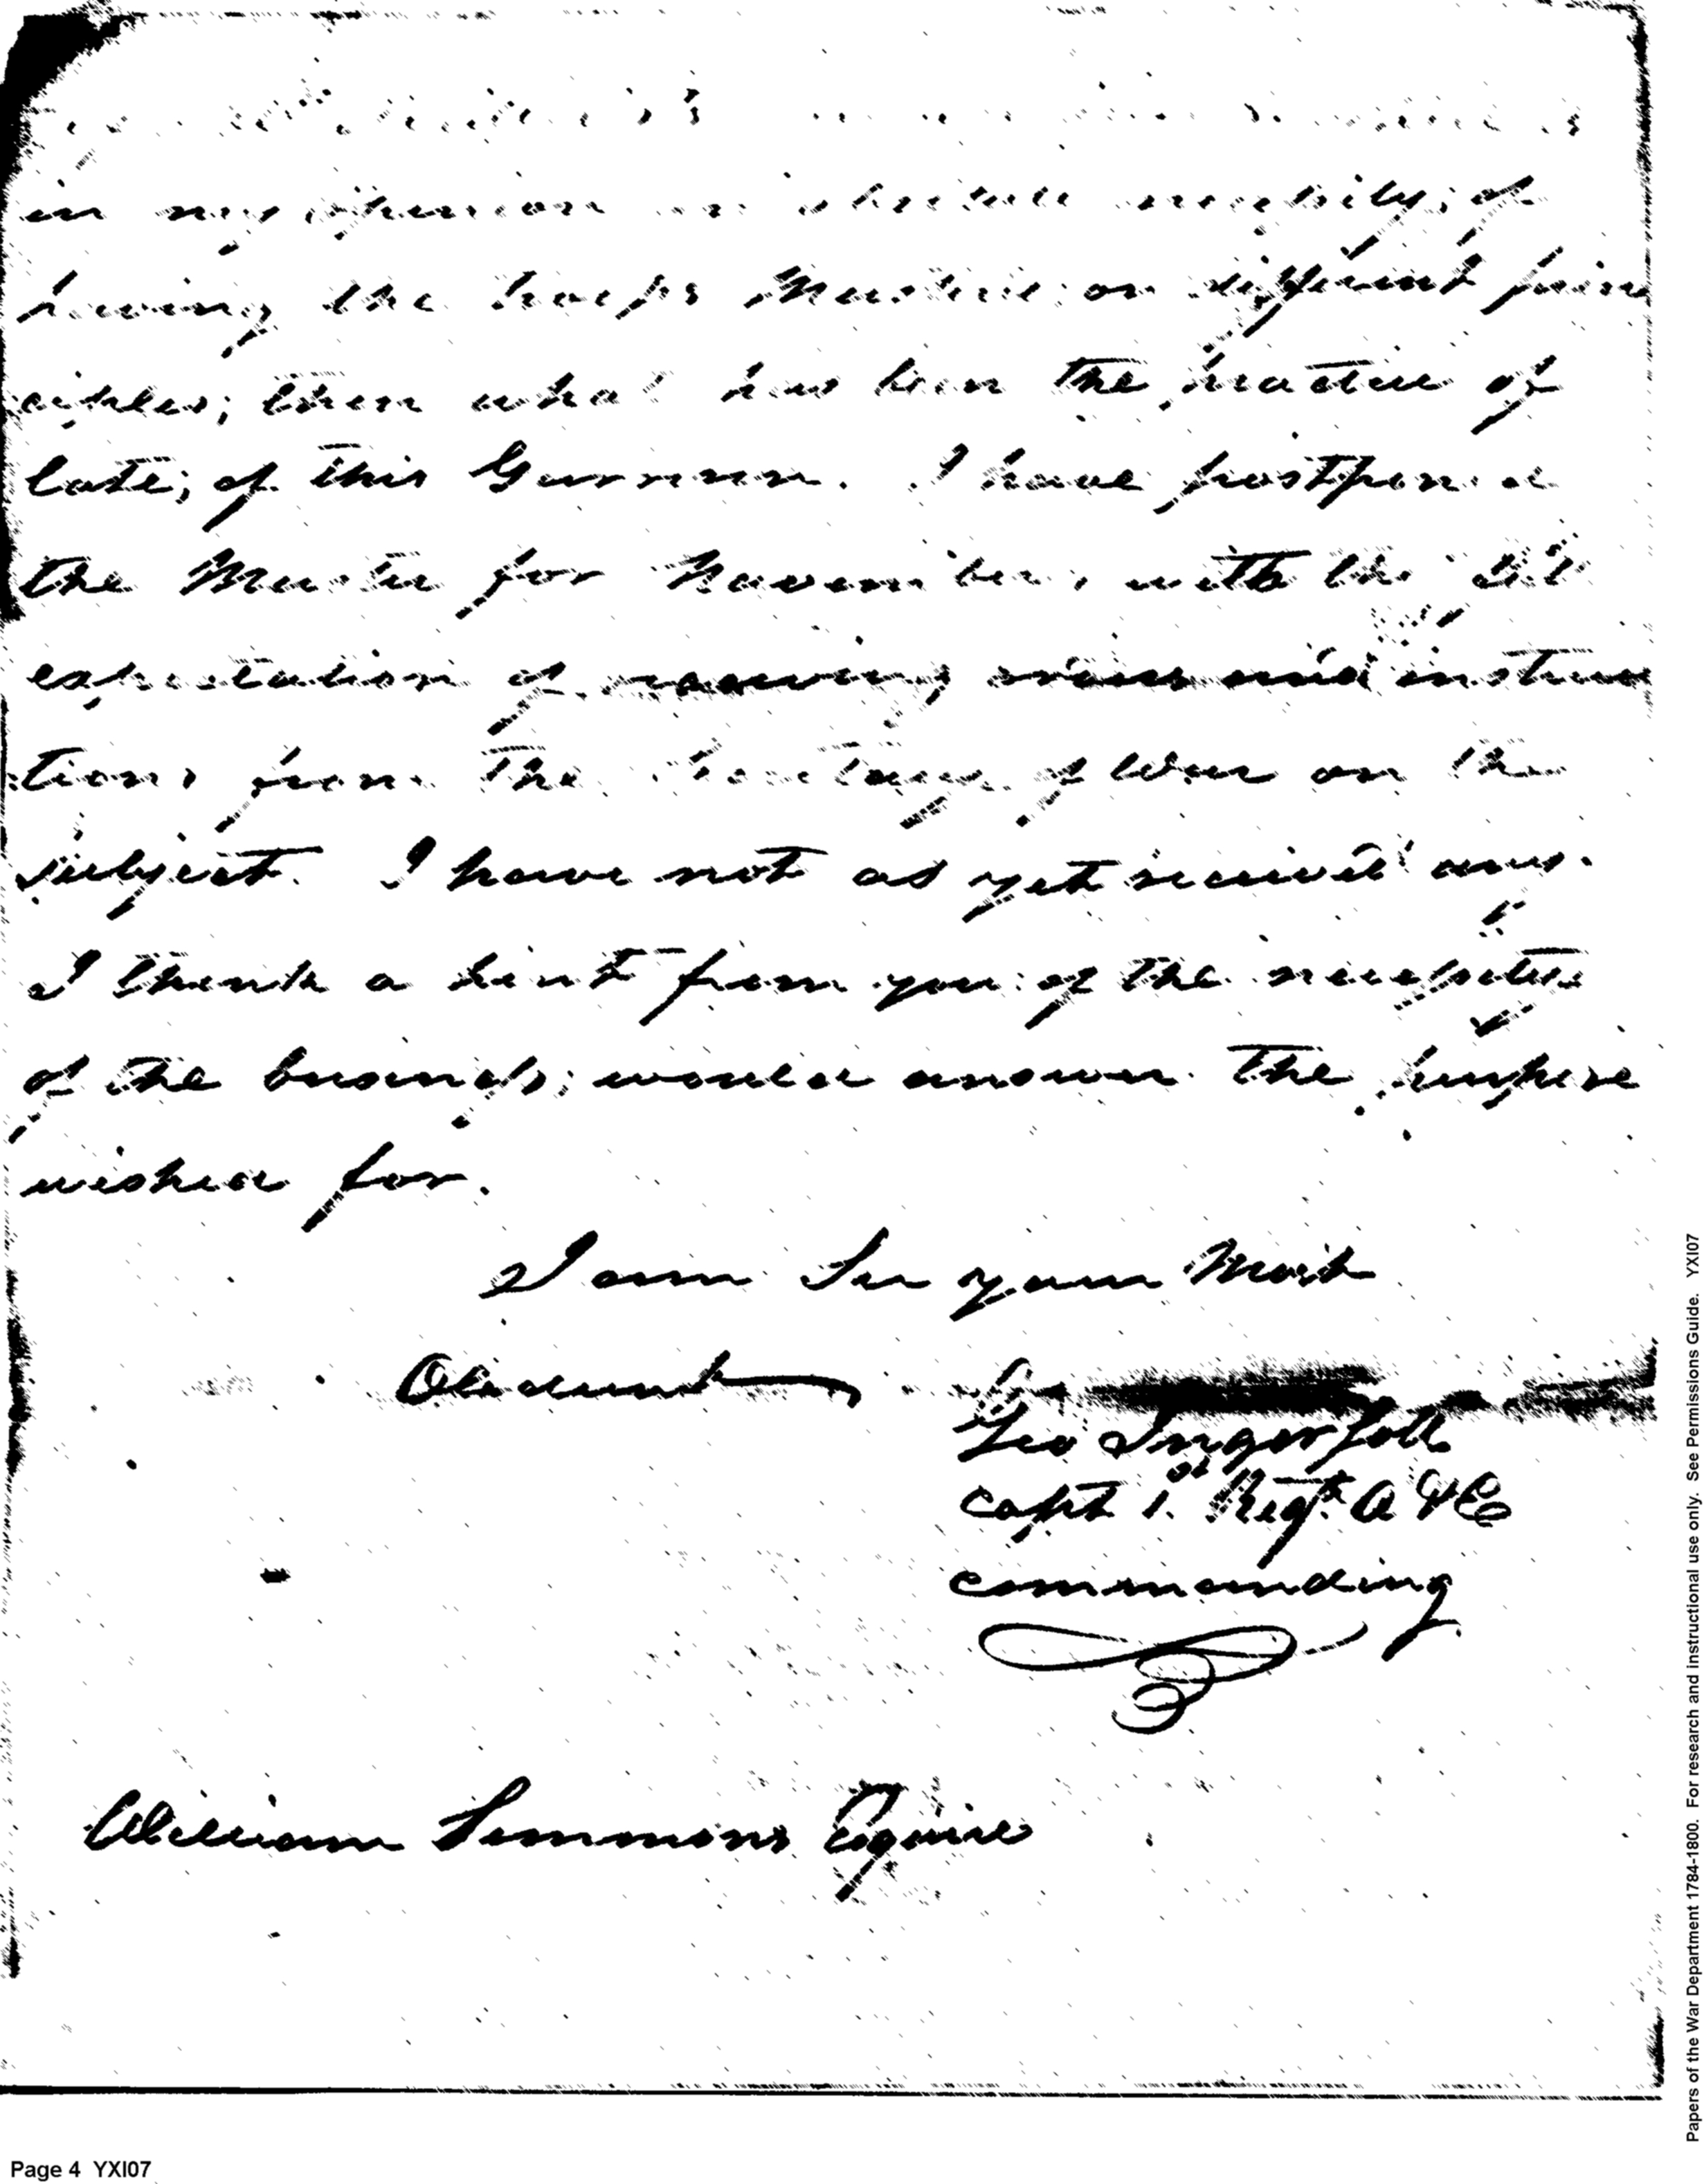 in my opinion an absolute necessity; of
having the troops Mustered on different prin
ciples; then what has been the practice of
late; of this Garrison. I have postponed
the Muster for November, with the full
expectation of receiving orders and instruc
tions from the Secretary of War on the
subject. I have not as yet received any.
I think a hint from you of the necessity
of the business; would answer the purpose
wished for.
I am Sir your Most
Obedient
Geo Ingersoll
Capt 1st Regt A & E
commanding
William Simmons Esquire
Page 4 YXI07
Papers of the War Department 1784-1800. For research and instructional use only. See Permissions Guide. YXI07